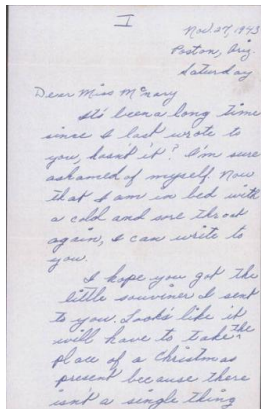 I
Nov. 27, 1943
Poston, Ariz.
Saturday
Dear Miss McNary
It's been a long time
since I last wrote to
you, hasn't it? I'm sure
ashamed of myself. Now
that I am in bed with
a cold and sore throat
again, I can write to
you.
I hope you got the
little souviner I sent
to you. Looks like it
will have to take the
place of a Christmas
present because there
isnt a single thing